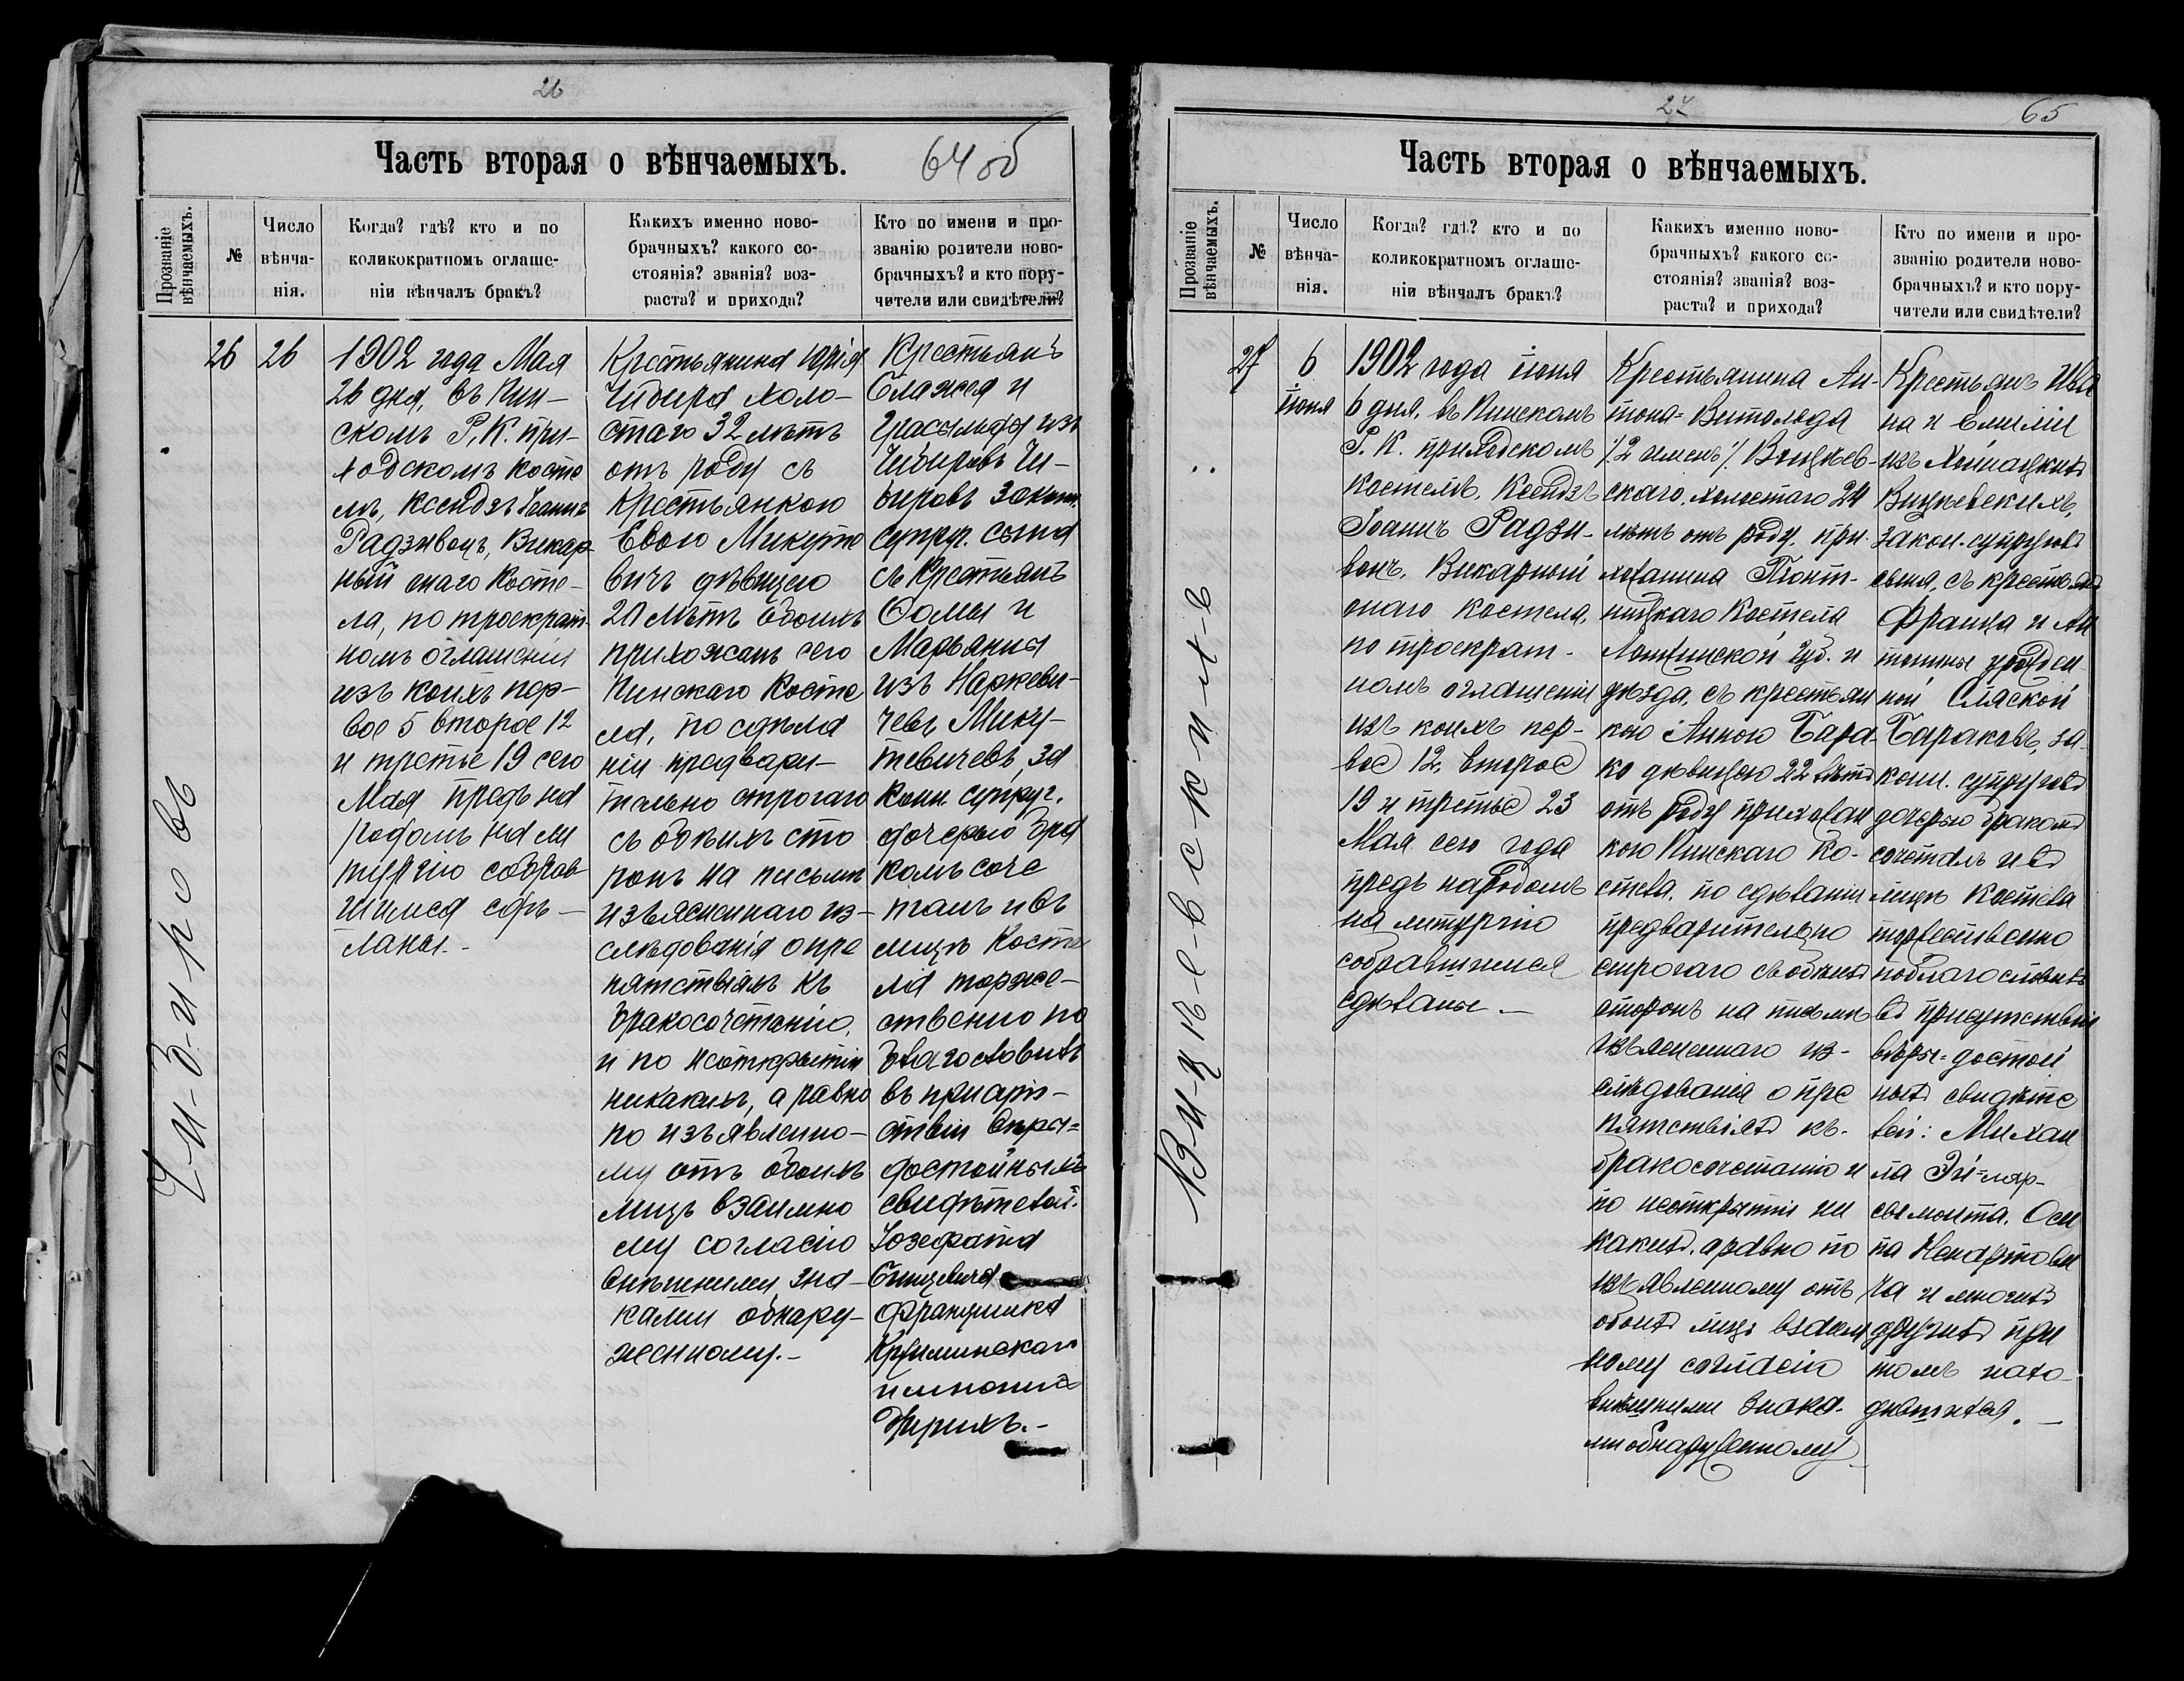 26
Часть вторая о вѣнчаемыхъ.
64 об
Прозваніе вѣнчаемыхъ.
№
Число вѣнча-
нія.
Когда? гдѣ? кто и по
коликократномъ оглаше-
ніи вѣнчалъ бракъ?
Какихъ именно ново-
брачныхъ? какого со-
стоянія? званія? воз-
раста? и прихода?
Кто по имени и про-
званію родители ново-
брачныхъ? и кто пору-
чители или свидѣтели?
Чибировъ
26
26
1902 года Мая
26 дня, въ Пин-
скомъ Р. К. при-
ходскомъ косте
лѣ, Ксендзъ Іоаннъ
Радзивонъ, Викар
ный онаго Косте-
ла, по троекрат
номъ оглашеніи
изъ коихъ пер-
вое 5 второе 12
и третье 19 сего
Мая предъ на
родомъ на ли
тургію собрав
шимся сдѣ-
ланы.-
Крестьянина Юрія
Чибира холо-
стаго 32 лѣтъ
отъ роду съ
крестьянкою
Евою Микуте
вичъ дѣвицею
20 лѣтъ обоихъ
прихожанъ сего
Пинскаго Косте
ла, по сдѣла
ніи предвари-
тельно строгаго
съ обѣихъ сто
ронъ на письмѣ
изъясненнаго из-
слѣдованія о пре
пятствіяхъ къ
бракосочетанію,
и по неоткрытіи
никакихъ, а равно
по изъявленно-
му отъ обоихъ
лицъ взаимно
му согласію
внѣшними зна-
ками обнару-
женному.-
Крестьянъ
Блажея и
изъ
Чибировъ Чи-
бировъ закон.
супруг. сына
съ Крестьянъ
Ѳомы и
Марьяны
изъ Наркеви-
чевъ Мику-
тевичевъ, за
конн. супруг.
дочерью бра
комъ соче
талъ и въ
лицѣ Косте
ла торже-
ственно по
благословилъ
въ присут-
ствіи вѣры=
достойныхъ
свидѣтелей:
Іозефата
Франчишка
и многихъ
другихъ.-
27
65
Часть вторая о вѣнчаемыхъ.
Прозваніе вѣнчаемыхъ.
№
Число вѣнча-
нія.
Когда? гдѣ? кто и по
коликократномъ оглаше-
ніи вѣнчалъ бракъ?
Какихъ именно ново-
брачныхъ? какого со-
стоянія? званія? воз-
раста? и прихода?
Кто по имени и про-
званію родители ново-
брачныхъ? и кто пору-
чители или свидѣтели?
27
6
іюня
1902 года іюня
6 дня, въ Пинскомъ
Р. К. приходскомъ
костелѣ, Ксендзъ
Іоаннъ Радзи-
вонъ, Викарный
онаго костела,
по троекрат-
номъ оглашеніи
изъ коихъ пер-
вое 12, второе
19 и третье 23
Мая сего года
предъ народомъ
на литургію
собравшимся
сдѣланы.-
Крестьянина Ан-
тона=Витольда
/.2 именъ/.
скаго, холостаго 24
лѣтъ отъ роду, при-
хожанина
Костела
Ломжинской губ. и
уѣзда, съ крестьян
кою Анною Бара-
ко дѣвицею 22 лѣтъ
отъ роду прихожан
кою Пинскаго Ко-
стела, по сдѣланіи
предварительно
строгаго съ обѣихъ
сторонъ на письмѣ
изъясненнаго из-
слѣдованія о пре
пятствіяхъ къ
бракосочетанію и
по неоткрытіи ни
какихъ, а равно по
изъявленному отъ
обоихъ лицъ взаим
ному согласію
внѣшними знака-
ми обнаруженному.
Крестьянъ Ива
на и Емиліи
изъ
закон. супруговъ
сына, съ крестьянъ
Франца и Ан
тонины урожден
ной
Бараковъ, за
конн. супруговъ
дочерью бракомъ
сочеталъ и въ
лицѣ Костела
торжественно
поблагословилъ
въ присутствіи
вѣры=достой
ныхъ свидѣте
лей: Михаи
ла
Оси
па
ча и многихъ
другихъ при
томъ нахо-
дившихся.-